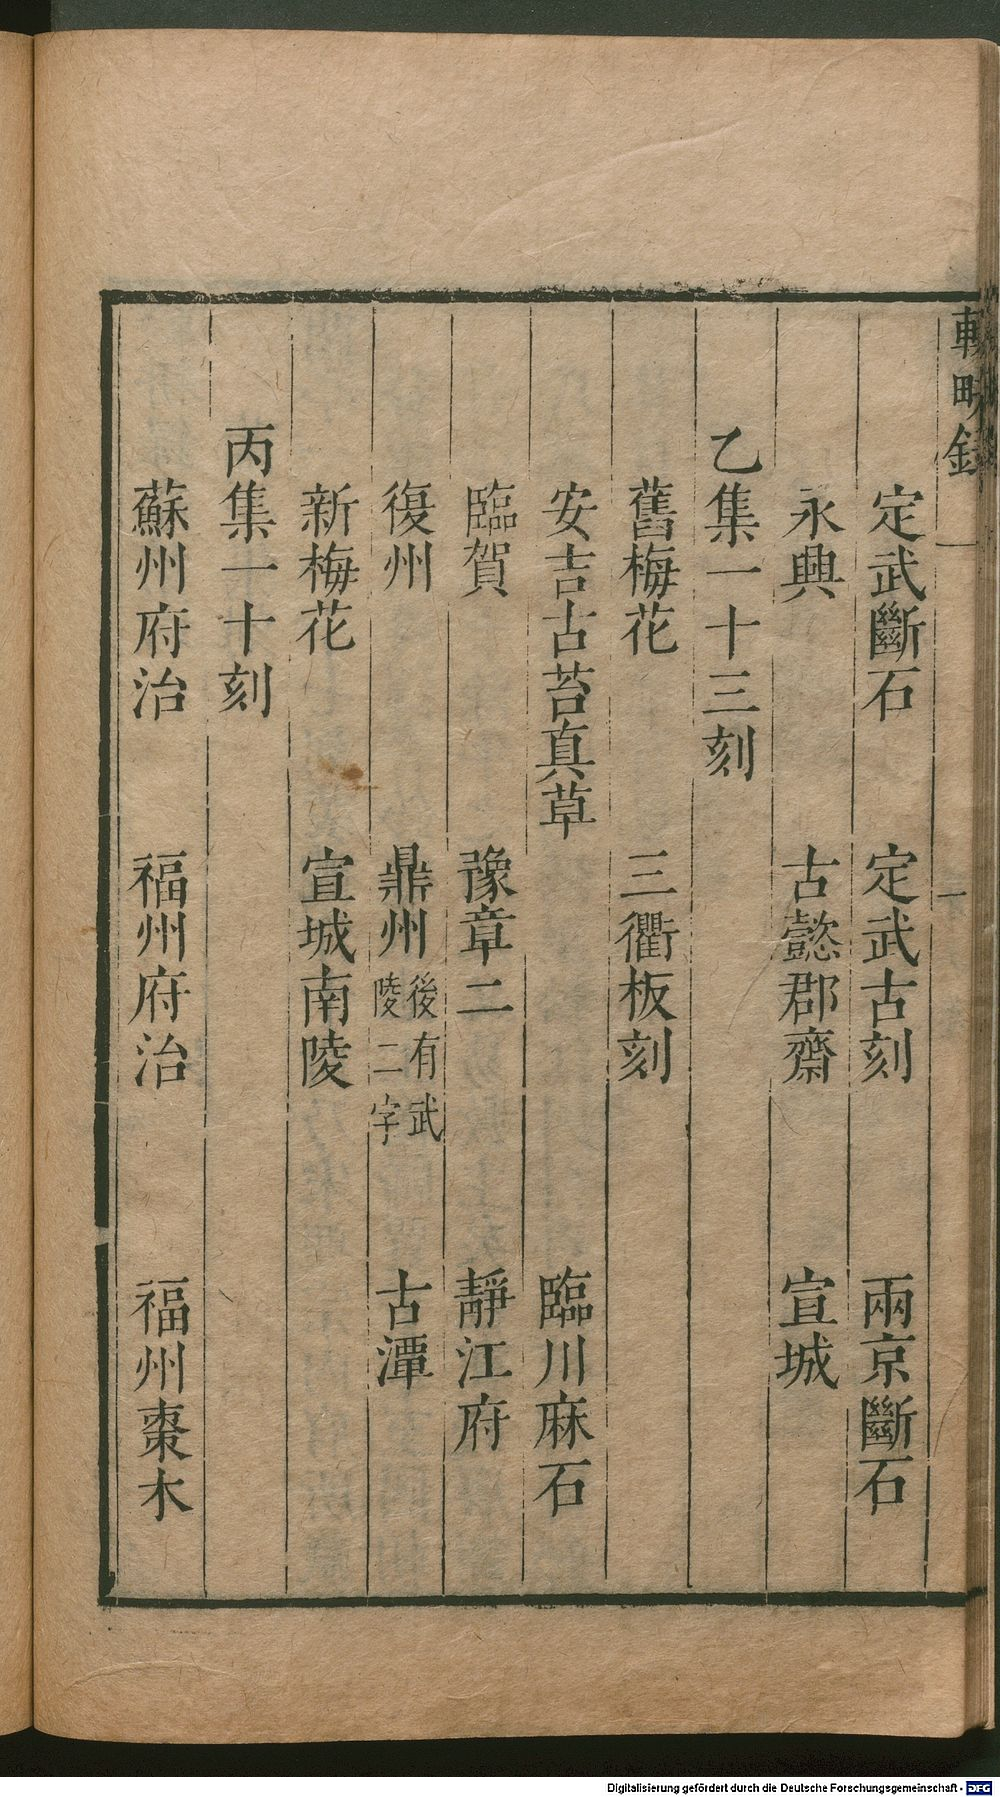 定武斷石　定武古刻　兩京斷石
永興　古懿郡齋　宣城
乙集一十三刻
舊梅花　三衢板刻
安吉古苔真草　臨川麻石
臨賀　豫章二　靜江府
復州　鼎州後有武陵二字　古潭
新梅花　宣城南陵
丙集一十刻
蘇州府治　福州府治　福州棗木
Digitalisierung gefördert durch die Deutsche Forschungsgemeinschaft - DFG